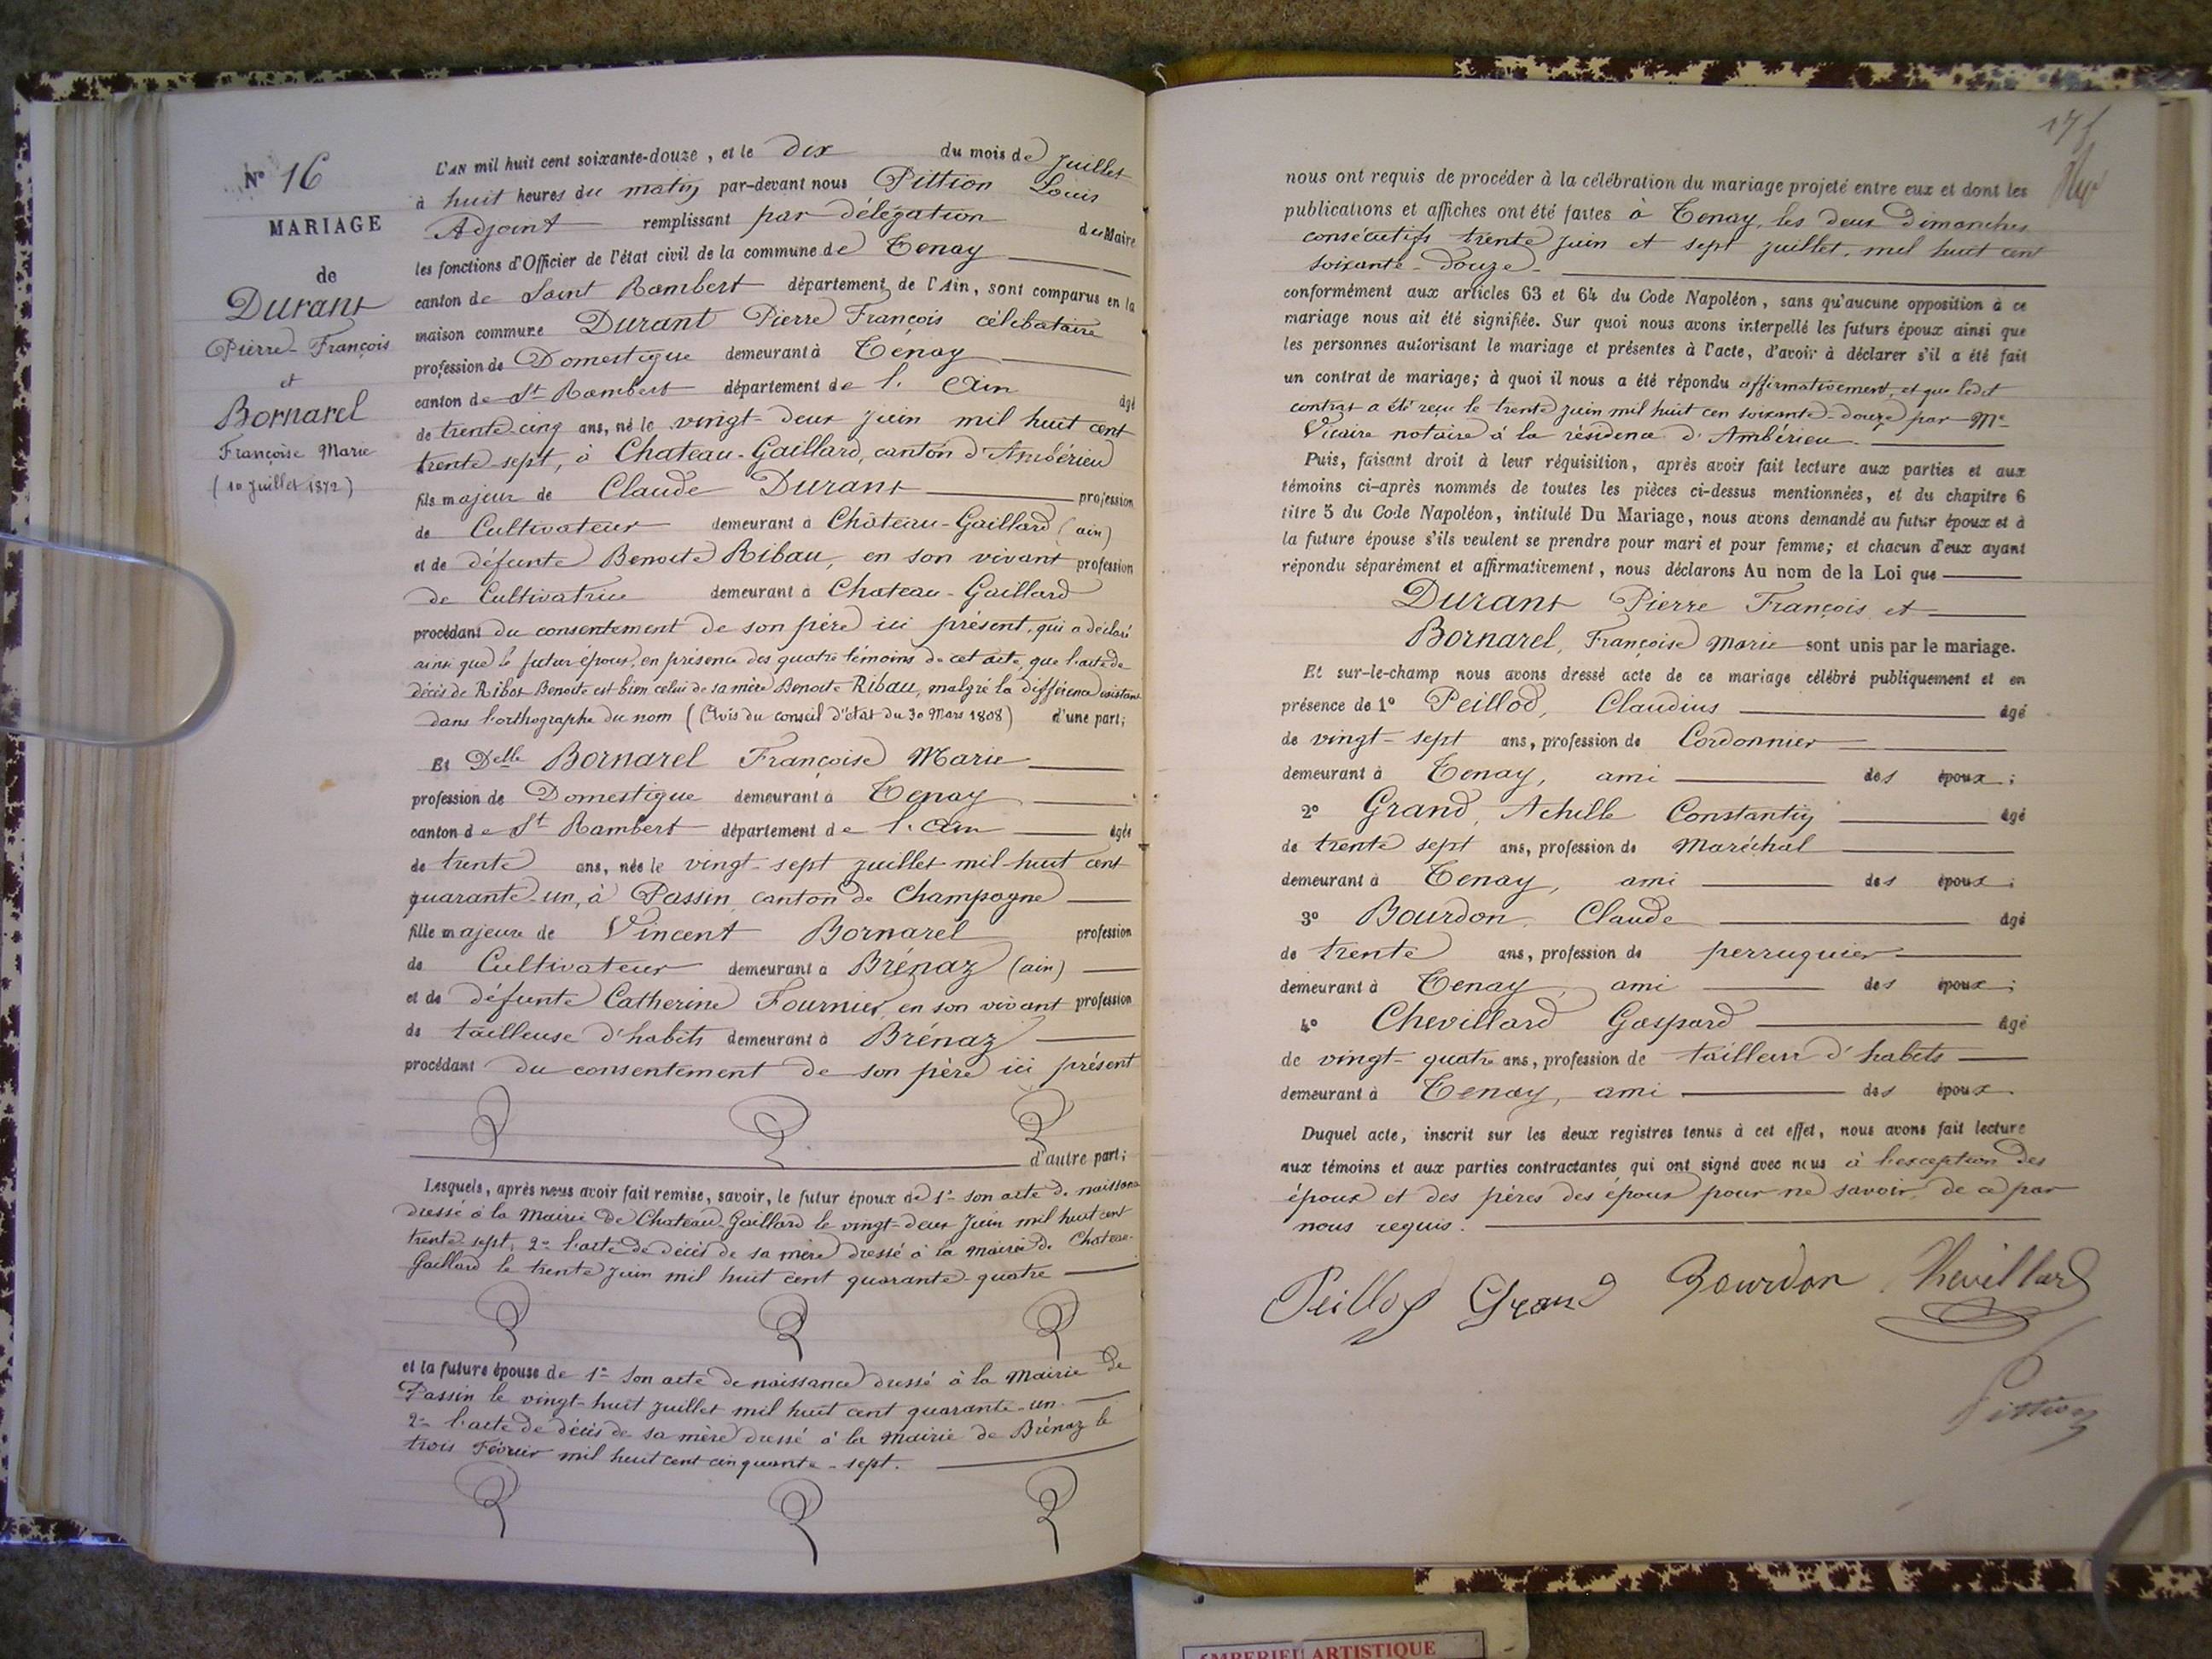 N° 16
MARIAGE
de
Durant
Pierre-François
et
Bornarel
Françoise Marie
(10 Juillet 1872)
L'AN mil huit cent soixante-douze, et le dix du mois de Juillet
à huit heures du matin par-devant nous Pittion Louis
Adjoint remplissant par délégation du Maire
les fonctions d'Officier de l'état civil de la commune de Tenay
canton de Saint Rambert département de l'Ain, sont comparus en la
maison commune Durant Pierre François célibataire
profession de Domestique demeurant à Tenay
canton de St Rambert département de l'Ain âgé
de trente-cinq ans, né le vingt-deux juin mil huit cent
trente-sept, à Chateau-Gaillard, canton d'Ambérieu
fils majeur de Claude Durant profession
de Cultivateur demeurant à Château-Gaillard (ain)
et de défunte Benoite Ribau, en son vivant profession
de Cultivatrice demeurant à Chateau-Gaillard
procédant du consentement de son père ici présent, qui a déclaré
ainsi que le futur époux, en présence des quatre témoins de cet acte, que l'acte de
décès de Ribot Benoite est bien celui de sa mère Benoite Ribau, malgré la différence existant
dans l'orthographe du nom (Avis du conseil d'état du 30 Mars 1808) d'une part;
Et Delle Bornarel Françoise Marie
profession de Domestique demeurant à Tenay
canton de St Rambert département de l'Ain âgée
de trente ans, née le vingt-sept juillet mil huit cent
quarante-un, à Passin, canton de Champagne
fille majeure de Vincent Bornarel profession
de Cultivateur demeurant à Brénaz (ain)
et de défunte Catherine Fournier, en son vivant profession
de tailleuse d'habits demeurant à Brénaz
procédant du consentement de son père ici présent
d'autre part;
Lesquels, après nous avoir fait remise, savoir, le futur époux de 1° son acte de naissance
dressé à la Mairie de Chateau-Gaillard le vingt-deux Juin mil huit cent
trente sept, 2° l'acte de décès de sa mère dressé à la Mairie de Chateau-
Gaillard le trente Juin mil huit cent quarante-quatre
et la future épouse de 1° Son acte de naissance dressé à la Mairie de
Passin le vingt-huit Juillet mil huit cent quarante-un
2° l'acte de décès de sa mère dressé à la Mairie de Brénaz le
trois Février mil huit cent cinquante-sept.
nous ont requis de procéder à la célébration du mariage projeté entre eux et dont les
publications et affiches ont été faites à Tenay, les deux Dimanches
consécutifs trente juin et sept juillet, mil huit cent
soixante-douze
conformément aux articles 63 et 64 du Code Napoléon, sans qu'aucune opposition à ce
mariage nous ait été signifiée. Sur quoi nous avons interpellé les futurs époux ainsi que
les personnes autorisant le mariage et présentes à l'acte, d'avoir à déclarer s'il a été fait
un contrat de mariage; à quoi il nous a été répondu affirmativement, et que ledit
contrat a été reçu le trente juin mil huit cen soixante-douze par Me
Vicaire notaire à la résidence d'Ambérieu
Puis, faisant droit à leur réquisition, après avoir fait lecture aux parties et aux
témoins ci-après nommés de toutes les pièces ci-dessus mentionnées, et du chapitre 6
titre 5 du Code Napoléon, intitulé Du Mariage, nous avons demandé au futur époux et à
la future épouse s'ils veulent se prendre pour mari et pour femme; et chacun d'eux ayant
répondu séparément et affirmativement, nous déclarons Au nom de la Loi que
Durant Pierre François et
Bornarel, Françoise Marie sont unis par le mariage.
Et sur-le-champ nous avons dressé acte de ce mariage célébré publiquement et en
présence de 1° Peillod, Claudius âgé
de vingt-sept ans, profession de Cordonnier
demeurant à Tenay, ami des époux;
2° Grand, Achille Constantin âgé
de trente sept ans, profession de Maréchal
demeurant à Tenay, ami des époux;
3° Bourdon, Claude âgé
de trente ans, profession de perruquier
demeurant à Tenay, ami des époux;
4° Chevillard Gaspard âgé
de vingt-quatre ans, profession de tailleur d'habits
demeurant à Tenay, ami des époux
Duquel acte, inscrit sur les deux registres tenus à cet effet, nous avons fait lecture
aux témoins et aux parties contractantes qui ont signé avec nous à l'exception des
époux et des pères des époux pour ne savoir, de ce par
nous requis.
Peillod Grand Bourdon Chevillard
Pittion
AMBERIEU ARTISTIQUE